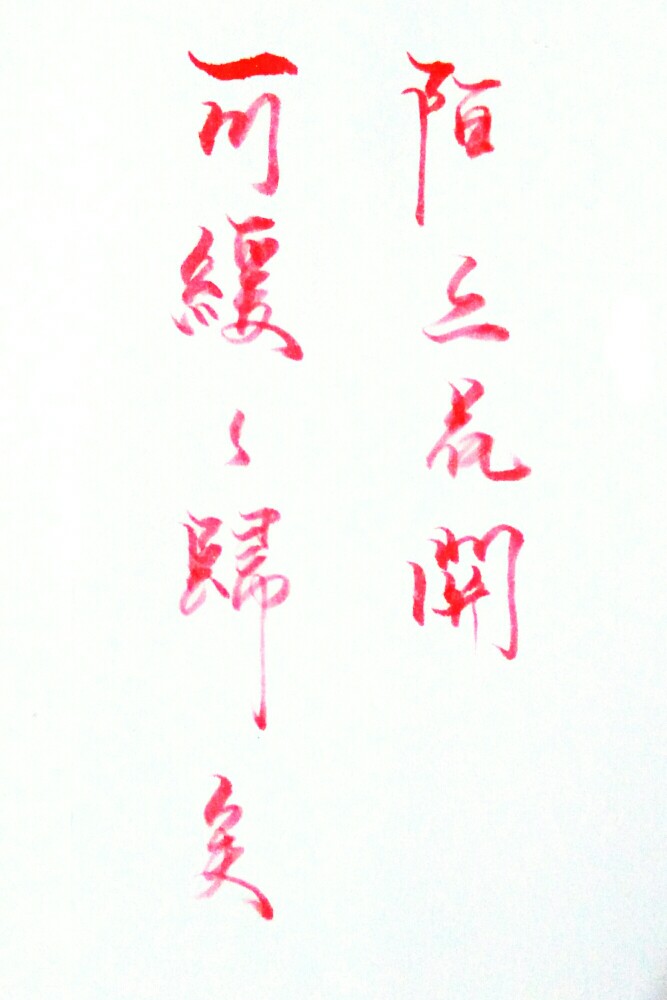 陌上花開
可緩々歸矣